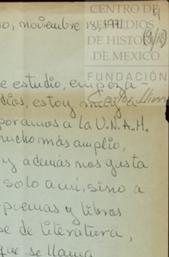 o, noviembre 13, 1971
CENTRO DE
ESTUDIOS
DE HISTORIA
DE MEXICO
FUNDACIÓN
e estudio, empeza-
dias, estoy muy
poramos a la U.N.A.M.
mucho más amplio,
y además nos gusta
solo a mi, sino a
poemas y libros
se de literatura,
que se llama